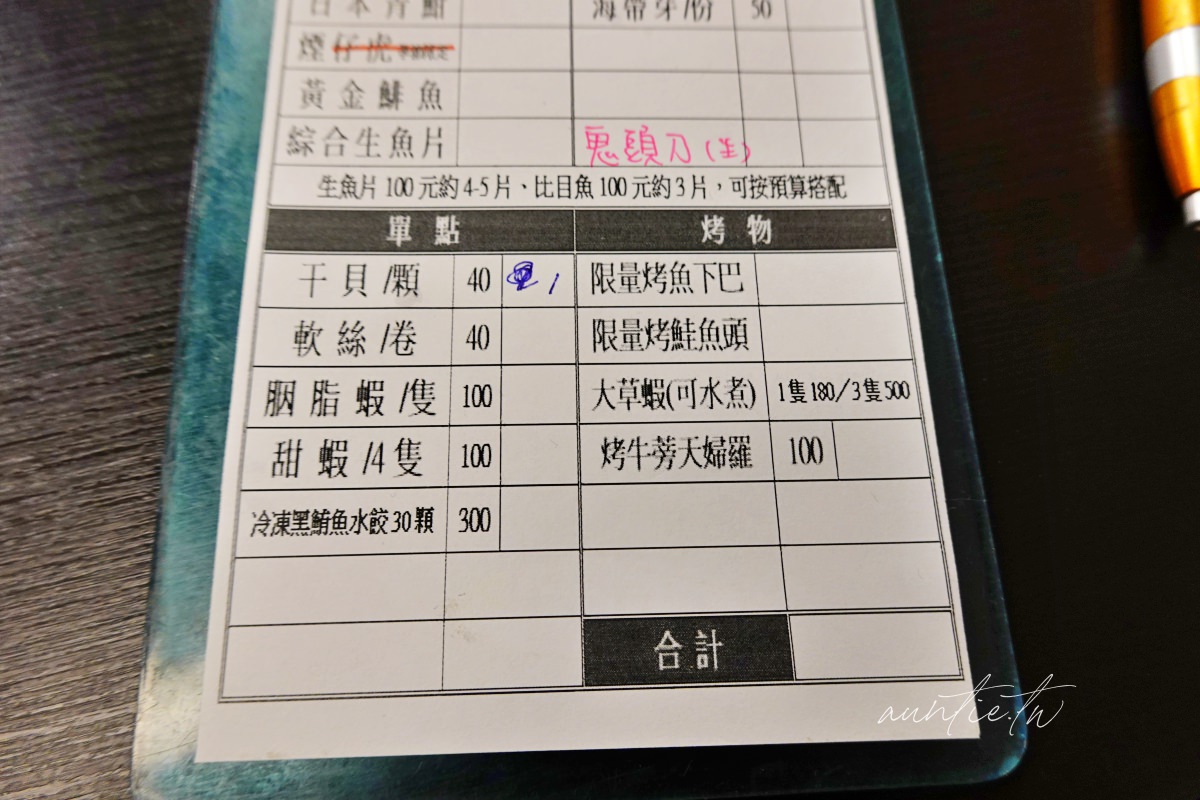 日本青魽 海帶芽/份 50
煙仔虎
黃金鯡魚
綜合生魚片 鬼頭刀(生)
生魚片100元約4-5片、比目魚100元約3片，可按預算搭配
單點 烤物
干貝/顆 40 1 限量烤魚下巴
軟絲/卷 40 限量烤鮭魚頭
胭脂蝦/隻 100 大草蝦(可水煮) 1隻180/3隻500
甜蝦/4隻 100 烤牛蒡天婦羅 100
冷凍黑鮪魚水餃30顆 300
合計
auntie.tw